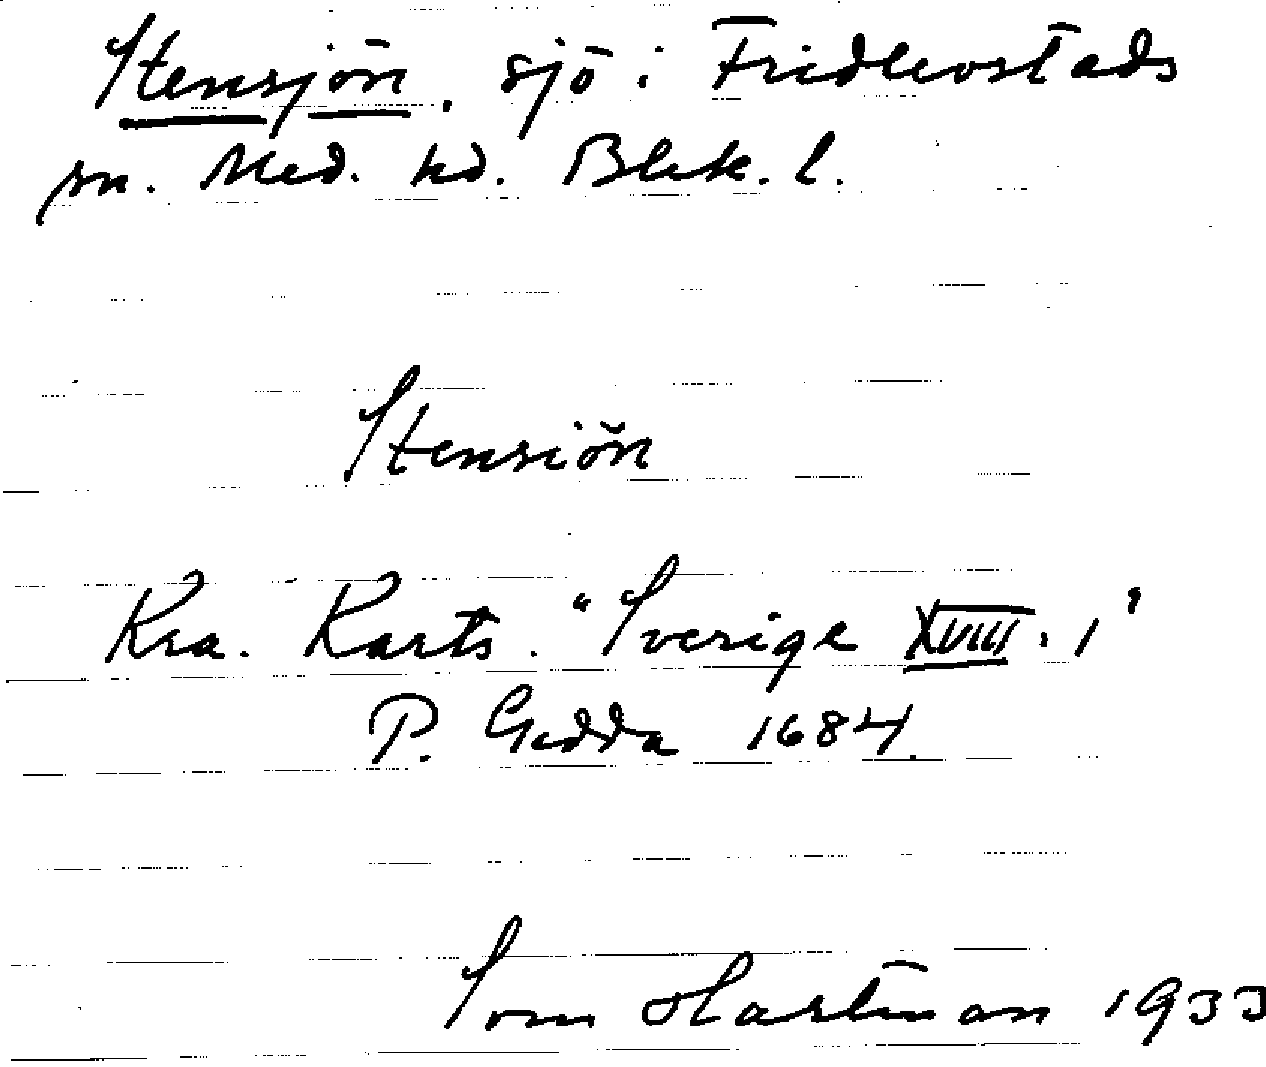 Stensjön. sjö i Fridlevstads
sn. Med. hd. Blek. l.
Stensiön
Kra. Karts. "Sverige XVIII. 1"
P. Gedda 1684.
Sven Hartman 1933